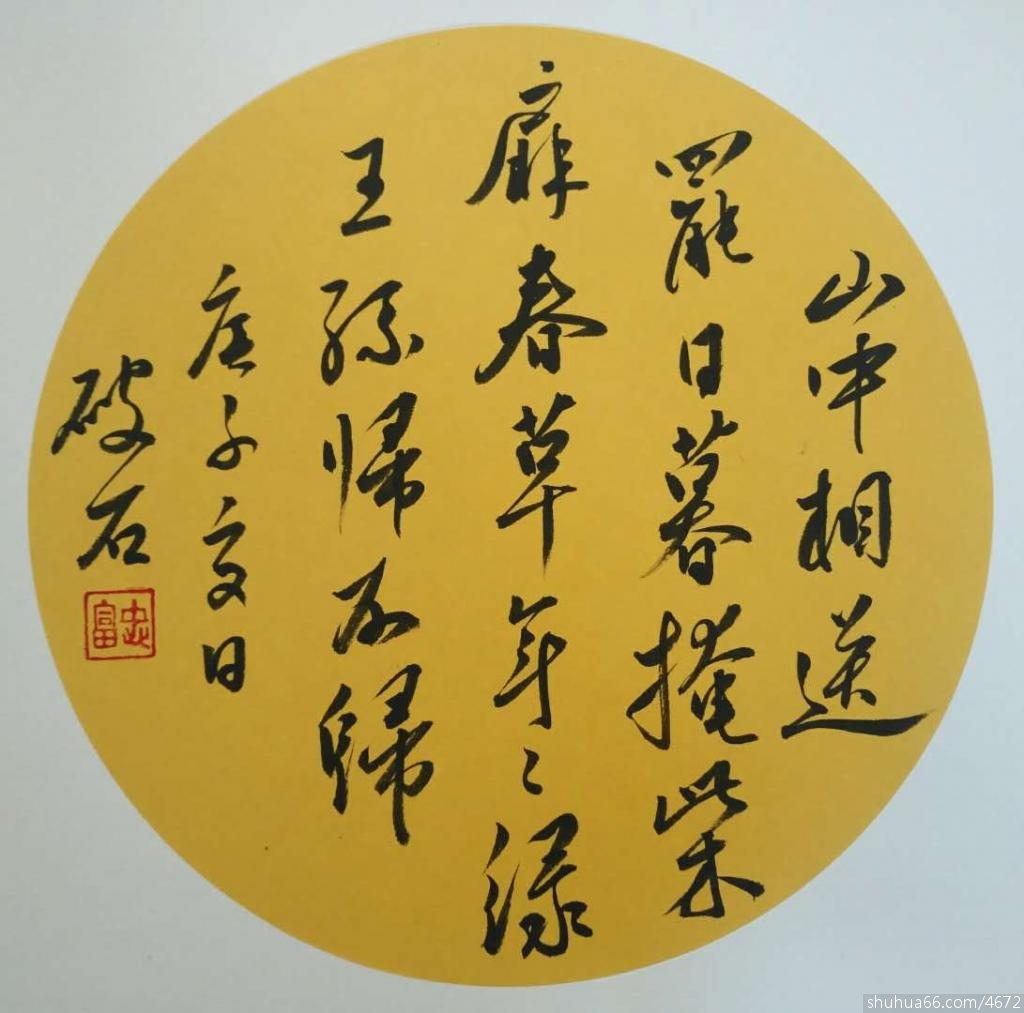 山中相送
罷日暮掩柴
扉春草年々緑
王孫帰不歸
庚子夏日
破石
忠富
shuhua66.com/4672